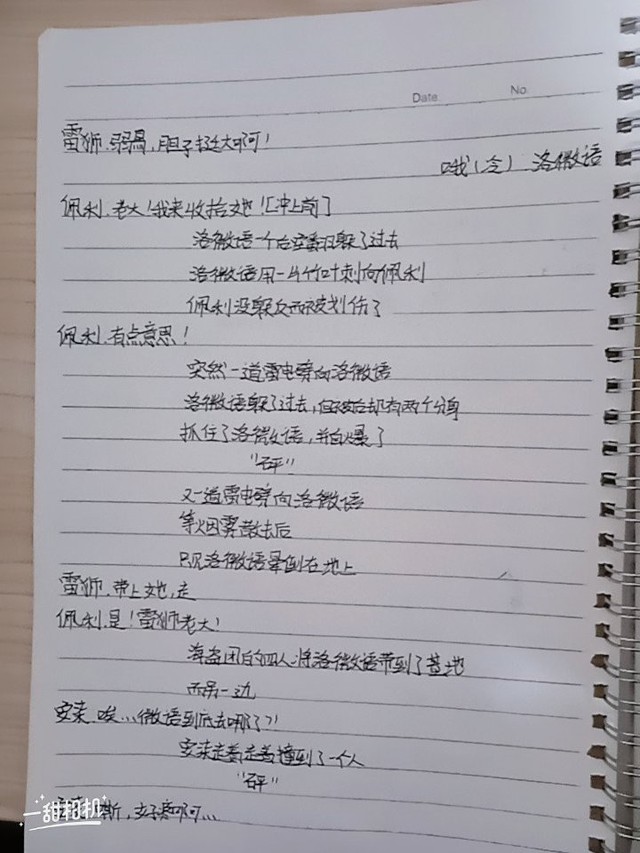 Date
No
雷狮.弱鬲,胆子挺大啊!
哦(冷).洛微语
佩利.老大!我来收拾她![冲上前]
洛微语一个后空翻躲了过去
洛微语用一片竹叶刺向佩利
佩利没躲反而被划伤了
佩利.有点意思!
突然一道雷电劈向洛微语
洛微语躲了过去,但背后却有两个分身
抓住了洛微语,并自爆了
"砰"
又一道雷电劈向洛微语
等烟雾散去后
只见洛微语晕倒在地上
雷狮.带上她,走
佩利.是!雷狮老大!
海盗团的四人将洛微语带到了基地
而另一边
安莱.唉...微语到底去哪了?!
安莱走着走着撞到了一个人
"砰"
嘶,好疼啊...
一甜相机